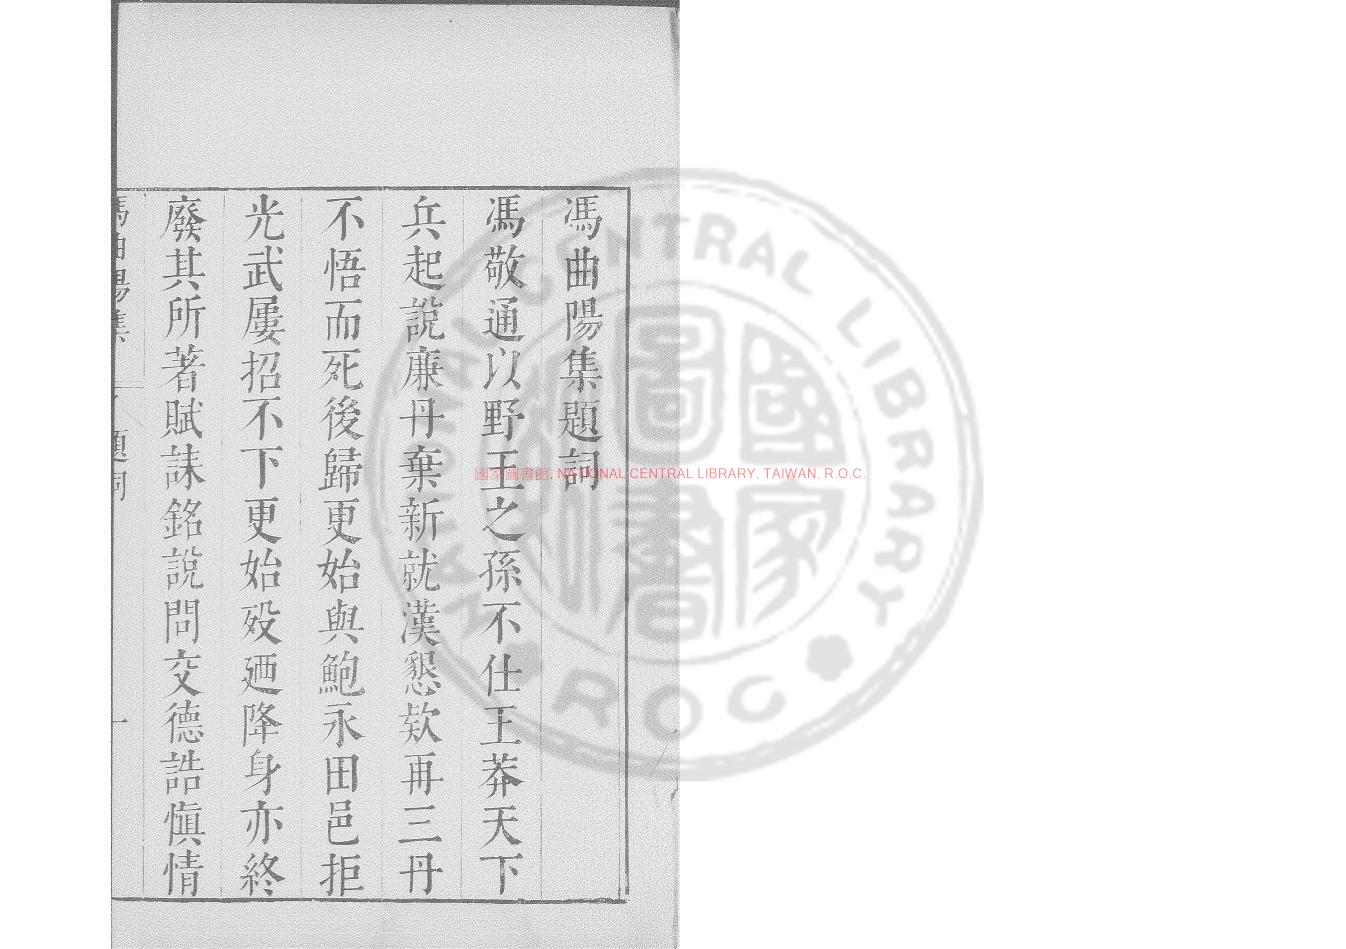 馮曲陽集題詞
馮敬通以野王之孫不仕王莽天下
兵起說廉丹棄新就漢懇欵再三丹
不悟而死後歸更始與鮑永田邑拒
光武屢招不下更始歿廼降身亦終
廢其所著賦誄銘說問交德誥慎情
馮曲陽集 題詞 一
國家圖書館, NATIONAL CENTRAL LIBRARY, TAIWAN, R.O.C.
NATIONAL CENTRAL LIBRARY
ROC
國家圖書